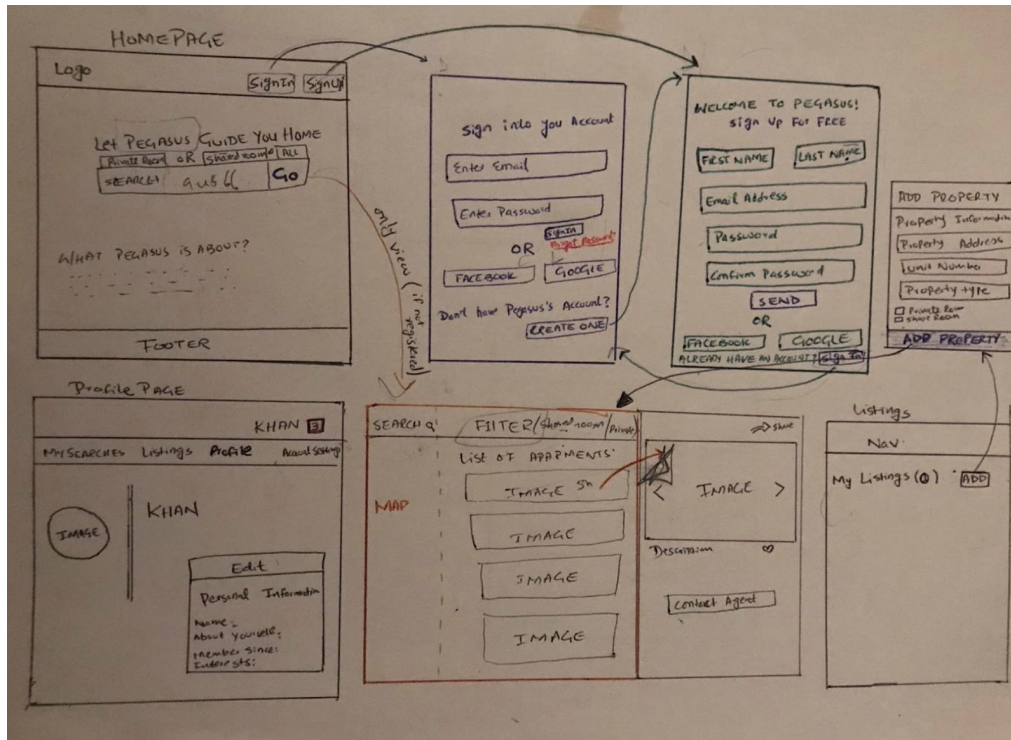 HOMEPAGE
Logo
SignIn SignUp
Let PEGASUS GUIDE YOU HOME
Private Room OR Shared room ALL
SEARCH GO
WHAT PEGASUS IS ABOUT?
FOOTER
only view (if not registered)
Sign into you Account
Enter Email
Enter Password
SignIn
Forgot Password
OR
FACEBOOK GOOGLE
Don't have Pegasus's Account?
CREATE ONE
WELCOME TO PEGASUS!
Sign UP FOR FREE
FIRST NAME LAST NAME
Email Address
Password
Confirm Password
SEND
OR
FACEBOOK GOOGLE
ALREADY HAVE AN ACCOUNT? Sign In
ADD PROPERTY
Property Information
Property Address
Unit Number
Property type
Private Room
Share Room
ADD PROPERTY
Profile PAGE
KHAN
MY SEARCHES Listings Profile Account Settings
IMAGE
KHAN
Edit
Personal Information
Name:
About Yourself:
Member Since:
Interests:
SEARCH FILTER/Shared room/Private
LIST OF APAPMENTS:
MAP
IMAGE
IMAGE
IMAGE
IMAGE
Share
< IMAGE >
Description
Contact Agent
Listings
Nav
My Listings (0) ADD